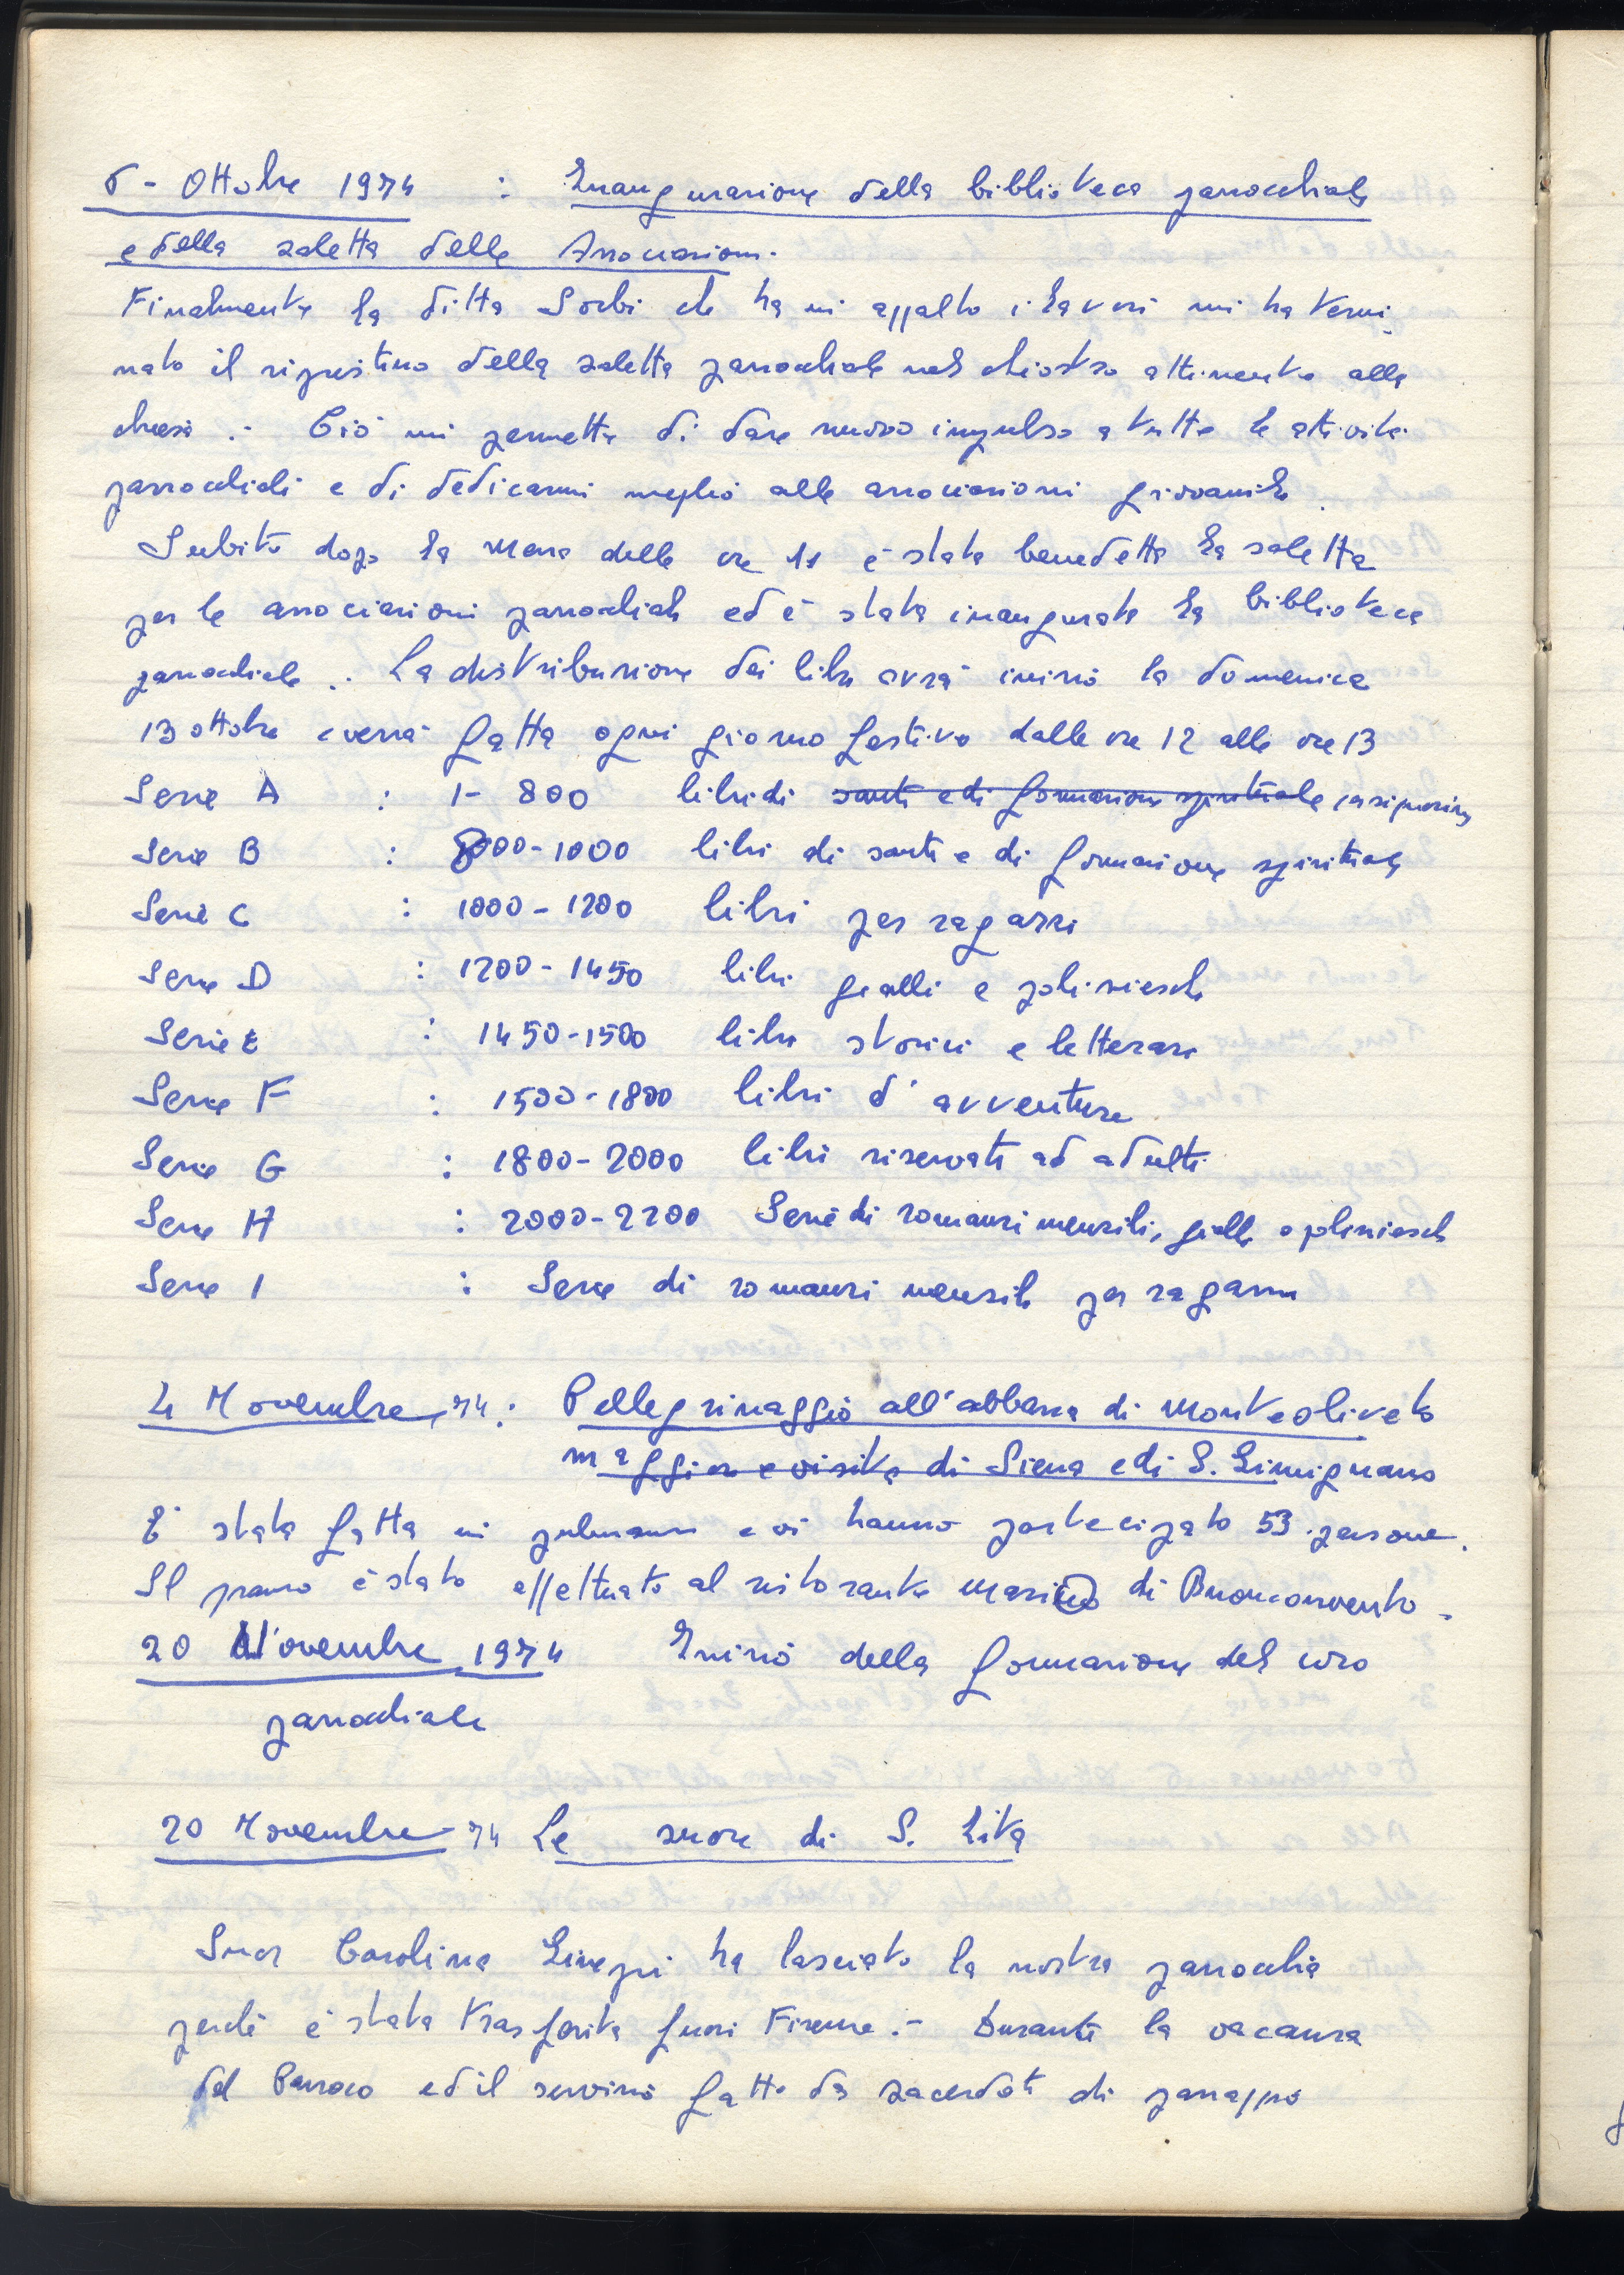 6 - Ottobre 1974 : Inaugurazione della biblioteca parrocchiale
e della saletta delle Associazioni.
Finalmente la ditta Sorbi che ha in appalto i lavori mi ha termi-
nato il ripristino della saletta parrocchiale nel chiostro attinente alla
chiesa .- Ciò mi permette di dare nuovo impulso a tutte le attività
parrocchiali e di dedicarmi meglio alle associazioni giovanili.
Subito dopo la Messa delle ore 11 è stata benedetta la saletta
per le associazioni parrocchiali ed è stata inaugurata la biblioteca
parrocchiale .. La distribuzione dei libri avrà inizio la domenica
13 ottobre e verrà fatta ogni giorno festivo dalle ore 12 alle ore 13
Serie A : 1- 800 libri di santi e di formazione spirituale
Serie B : 8000-1000 libri di santi e di formazione spirituale
Serie C : 1000-1200 libri per ragazzi
Serie D : 1200-1450 libri gialli e polizieschi
Serie E : 1450-1500 libri storici e letterari
Serie F : 1500-1800 libri d'avventure
Serie G : 1800-2000 libri riservati ad adulti
Serie H : 2000-2200 Serie di romanzi mensili, gialli o polizieschi
Serie I : Serie di romanzi mensili per ragazzi
4 Novembre 74: Pellegrinaggio all'abbazia di Monteoliveto
maggiore e visita di Siena e di S. Gimignano
E' stata fatta in pulmann e vi hanno partecipato 53 persone.
Il pranzo è stato effettuato al ristorante Marino di Buonconvento.
20 Novembre 1974 Inizio della formazione del coro
parrocchiale
20 Novembre 74 Le suore di S. Zita
Suor Carolina ha lasciato la nostra parrocchia
perchè è stata trasferita fuori Firenze .- Durante la vacanza
del Parroco ed il servizio fatto da sacerdoti di passaggio